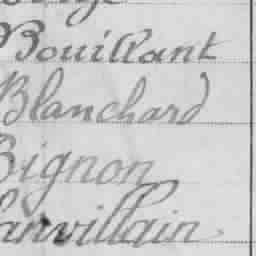 Bouillant
Blanchard
Bignon
Canvillain